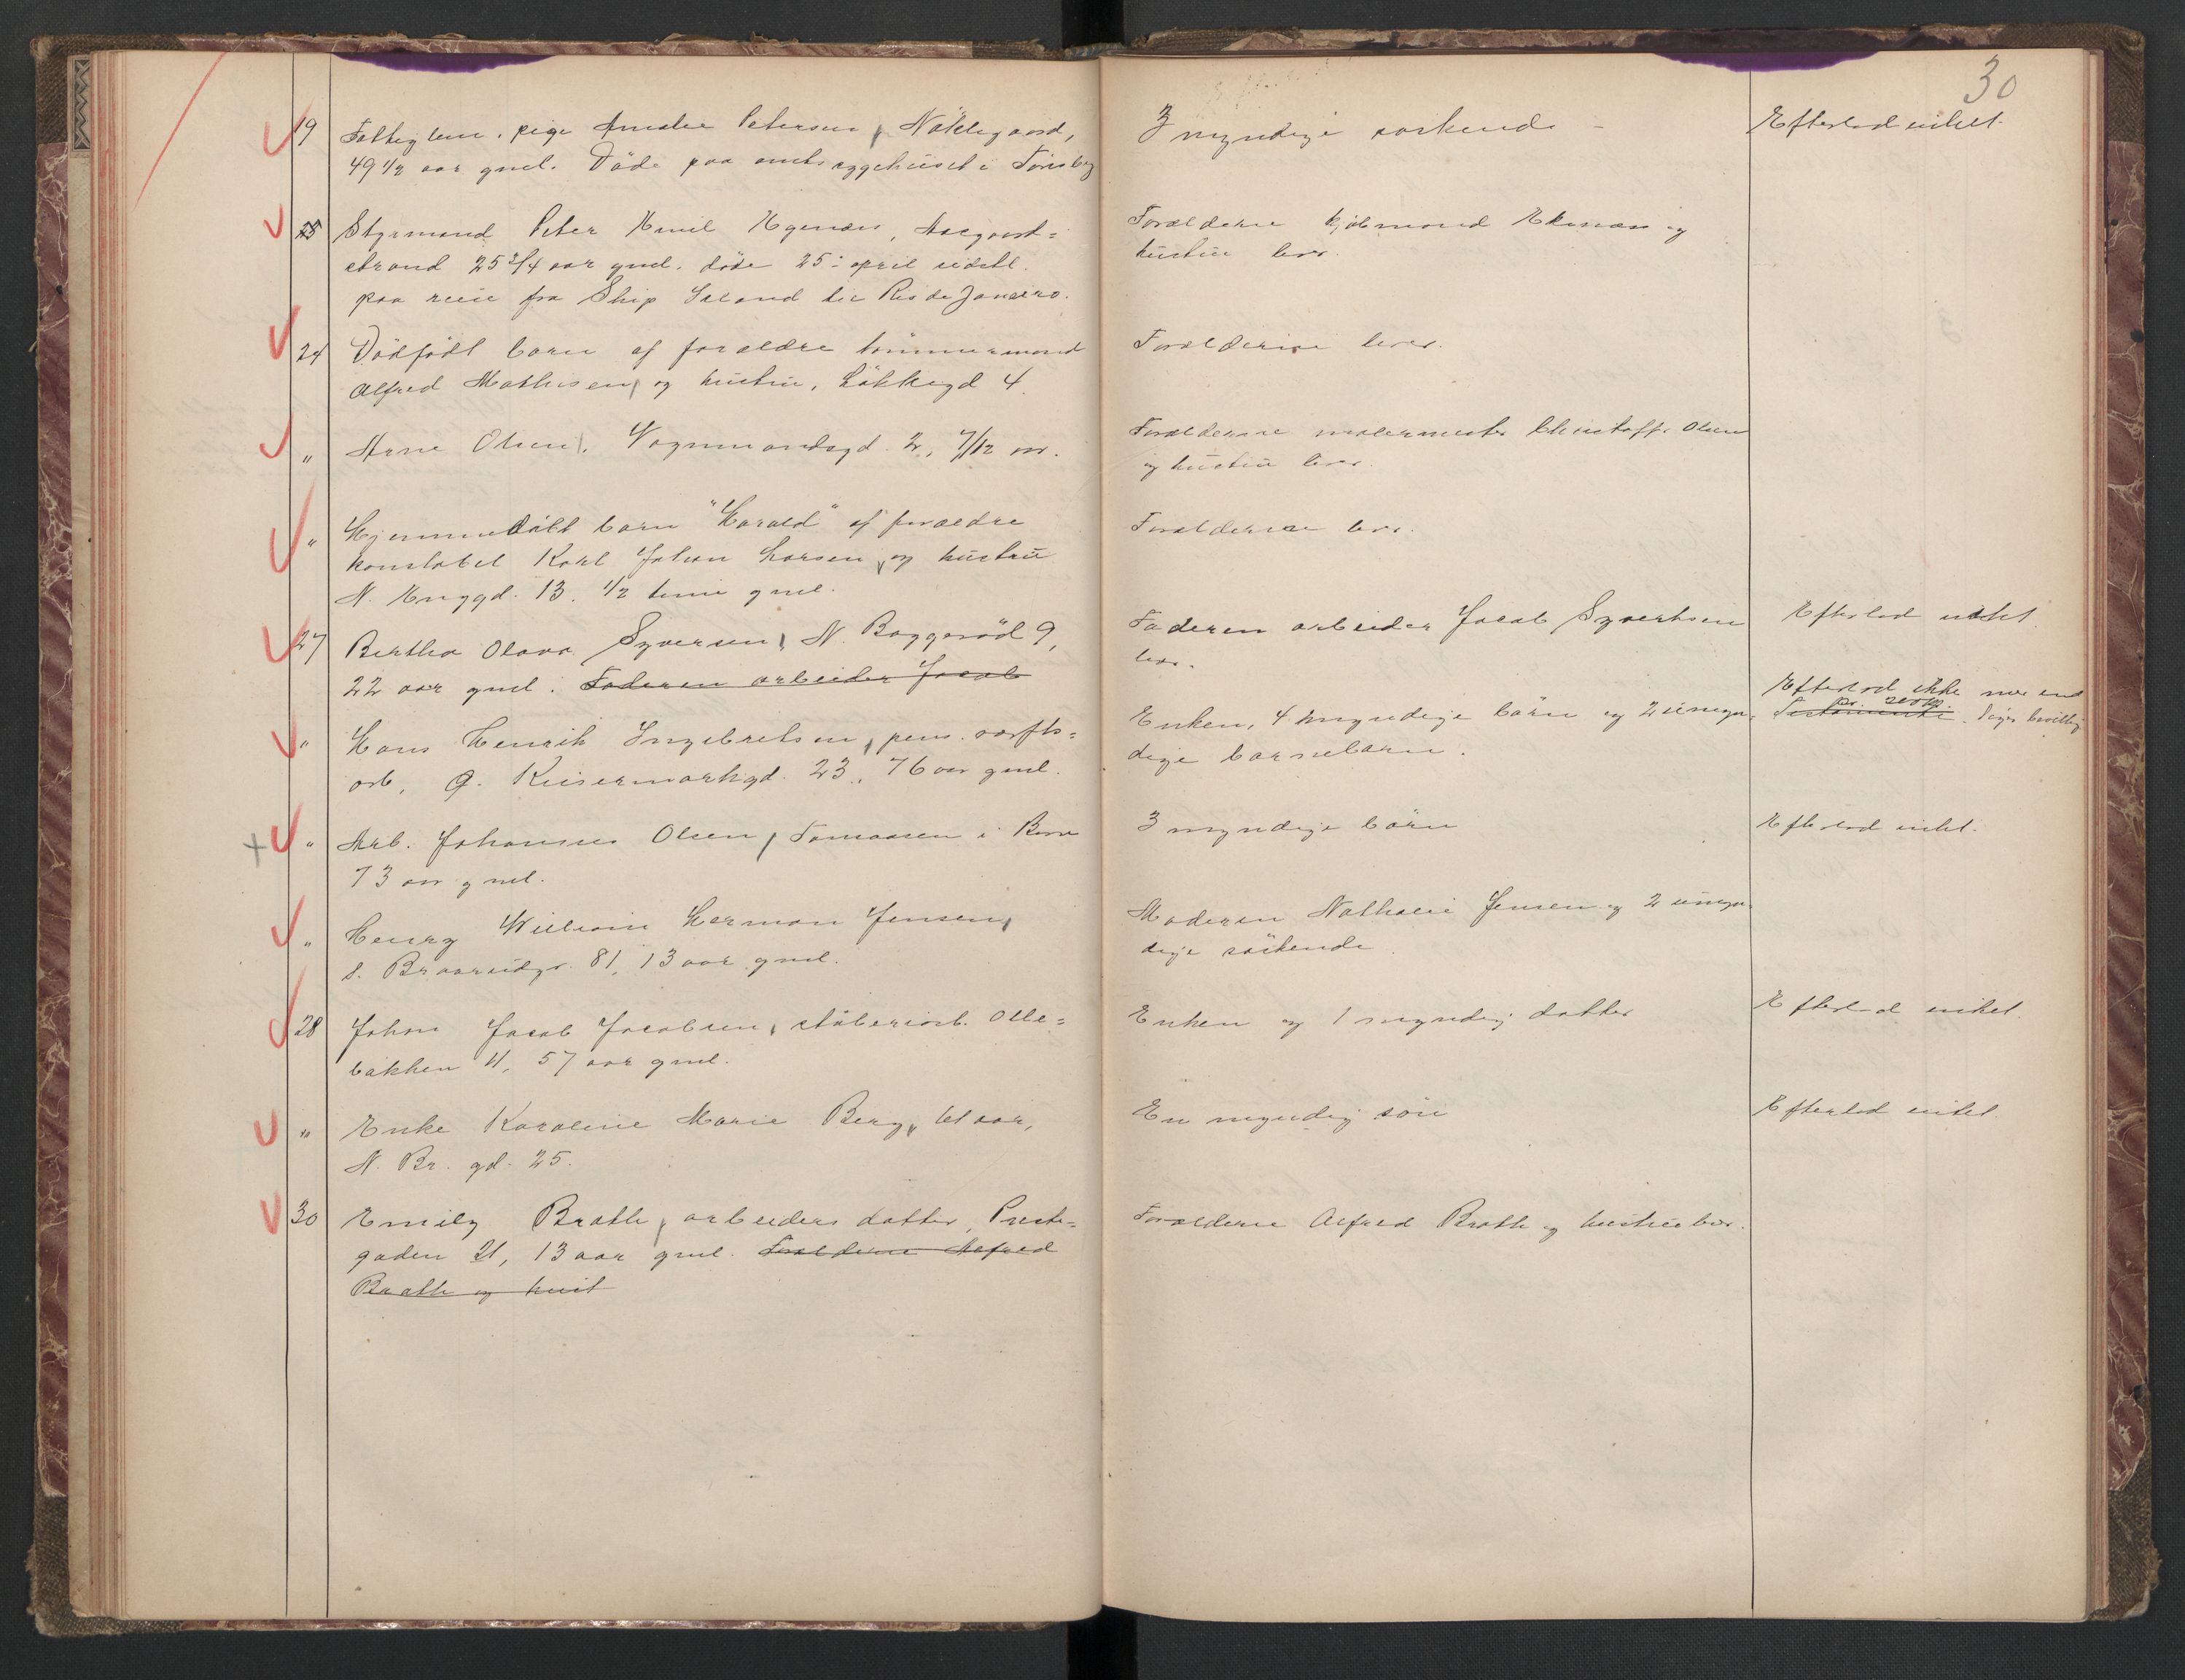 30
19 Fattiglem. pige Amalie Petersen, Nöklegaard,
49 1/2 aar gml. Döde paa amtssygehuset i Tönsberg
3 myndige söskende -
Efterlod intet.
25 Styrmand Peter Emil Egenæs, Aasgaard=
strand 25 3/4 aar gml. döde 25: april sidstl.
paa reise fra Ship Island til Rio de Janeiro.
Forælderne kjöbmand Ekenæs og
hustru lever.
24 Dödfödt barn af forældre tömmermand
Alfred Mathisen og hustru, Lökkegd 4.
Forælderne lever.
" Arne Olsen, Vognmandsgd. 2, 7/12 aar.
Forælderne malermester Christoffer Olsen
og hustru lever.
" Hjemmedöbt barn "Harald" af forældre
konstabel Karl Johan Larsen og hustru
N. Enggd. 13. 1/2 time gml.
Forælderne lever.
27 Bertha Olava Syversen, N. Baggeröd 9,
22 aar gml. Faderen arbeider Jacob
Faderen arbeider Jacob Syvertsen
lever.
Efterlod intet.
" Hans Henrik Ingebretsen, pens. værfts=
arb, G. Keisermarkgd. 23, 76 aar gml.
Enken, 4 myndige börn og 2 umyn=
dige barnebarn.
Efterlod ikke mer end
kr. 200
Testamente. Skjös bevillig
+ " Arb. Johannes Olsen, Tomaasen i Borre
73 aar gml.
3 myndige börn
Efterlod intet.
" Henry William Herman Jensen,
S. Braarudgd. 81, 13 aar gml.
Moderen Nathalie Jensen og 2 umyn=
dige söskende
28 Johan Jacob Jacobsen, stöberiarb. Olle=
bakken 11, 57 aar gml.
Enken og 1 myndig datter
Efterlod intet.
" Enke Karoline Marie Berg, 61 aar,
N. Br. gd. 25.
En myndig sön
Efterlod intet.
30 Emily Brath, arbeiders datter, Preste=
gaden 21, 13 aar gml. Forælderne Alfred
Brath og hust
Forælderne Alfred Brath og hustru lever.